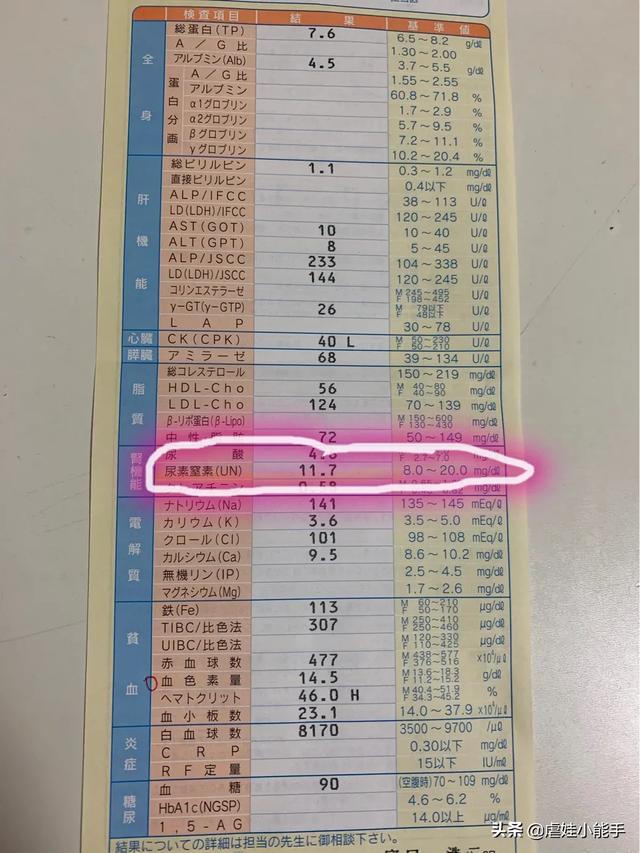 検査項目 結果 基準値
全身
総蛋白(TP) 7.6 6.5～8.2 g/dℓ
A／G比 1.30～2.00
アルブミン(Alb) 4.5 3.7～5.5 g/dℓ
蛋白分画
A／G比 1.55～2.55
アルブミン 60.8～71.8 %
α1グロブリン 1.7～2.9 %
α2グロブリン 5.7～9.5 %
βグロブリン 7.2～11.1 %
γグロブリン 10.2～20.4 %
肝機能
総ビリルビン 1.1 0.3～1.2 mg/dℓ
直接ビリルビン 0.4以下 mg/dℓ
ALP/IFCC 38～113 U/ℓ
LD(LDH)/IFCC 120～245 U/ℓ
AST(GOT) 10 10～40 U/ℓ
ALT(GPT) 8 5～45 U/ℓ
ALP/JSCC 233 104～338 U/ℓ
LD(LDH)/JSCC 144 120～245 U/ℓ
コリンエステラーゼ M 245～495 F 198～452 U/ℓ
γ-GT(γ-GTP) 26 M 79以下 F 48以下 U/ℓ
LAP 30～78 U/ℓ
心臓 CK(CPK) 40 L M 50～230 F 50～210 U/ℓ
膵臓 アミラーゼ 68 39～134 U/ℓ
脂質
総コレステロール 150～219 mg/dℓ
HDL-Cho 56 M 40～80 F 40～90 mg/dℓ
LDL-Cho 124 70～139 mg/dℓ
β-リポ蛋白(β-Lipo) M 150～600 F 130～430 mg/dℓ
中性脂肪 72 50～149 mg/dℓ
腎機能
尿酸 F 2.7～7.0
尿素窒素(UN) 11.7 8.0～20.0 mg/dℓ
クレアチニン 0.58
電解質
ナトリウム(Na) 141 135～145 mEq/ℓ
カリウム(K) 3.6 3.5～5.0 mEq/ℓ
クロール(Cl) 101 98～108 mEq/ℓ
カルシウム(Ca) 9.5 8.6～10.2 mg/dℓ
無機リン(IP) 2.5～4.5 mg/dℓ
マグネシウム(Mg) 1.7～2.6 mg/dℓ
貧血
鉄(Fe) 113 M 60～210 F 50～170 μg/dℓ
TIBC/比色法 307 M 250～410 F 250～460 μg/dℓ
UIBC/比色法 M 120～330 F 110～425 μg/dℓ
赤血球数 477 M 438～577 F 376～516 ×10⁴/μℓ
血色素量 14.5 M 13.6～18.3 F 11.2～15.2 g/dℓ
ヘマトクリット 46.0 H M 40.4～51.9 F 34.3～45.2 %
血小板数 23.1 14.0～37.9 ×10⁴/μℓ
炎症
白血球数 8170 3500～9700 /μℓ
CRP 0.30以下 mg/dℓ
RF定量 15以下 IU/mℓ
糖尿
血糖 90 (空腹時) 70～109 mg/dℓ
HbA1c(NGSP) 4.6～6.2 %
1,5-AG 14.0以上 μg/mℓ
結果についての詳細は担当の先生に御相談下さい。
头条 @虐娃小能手